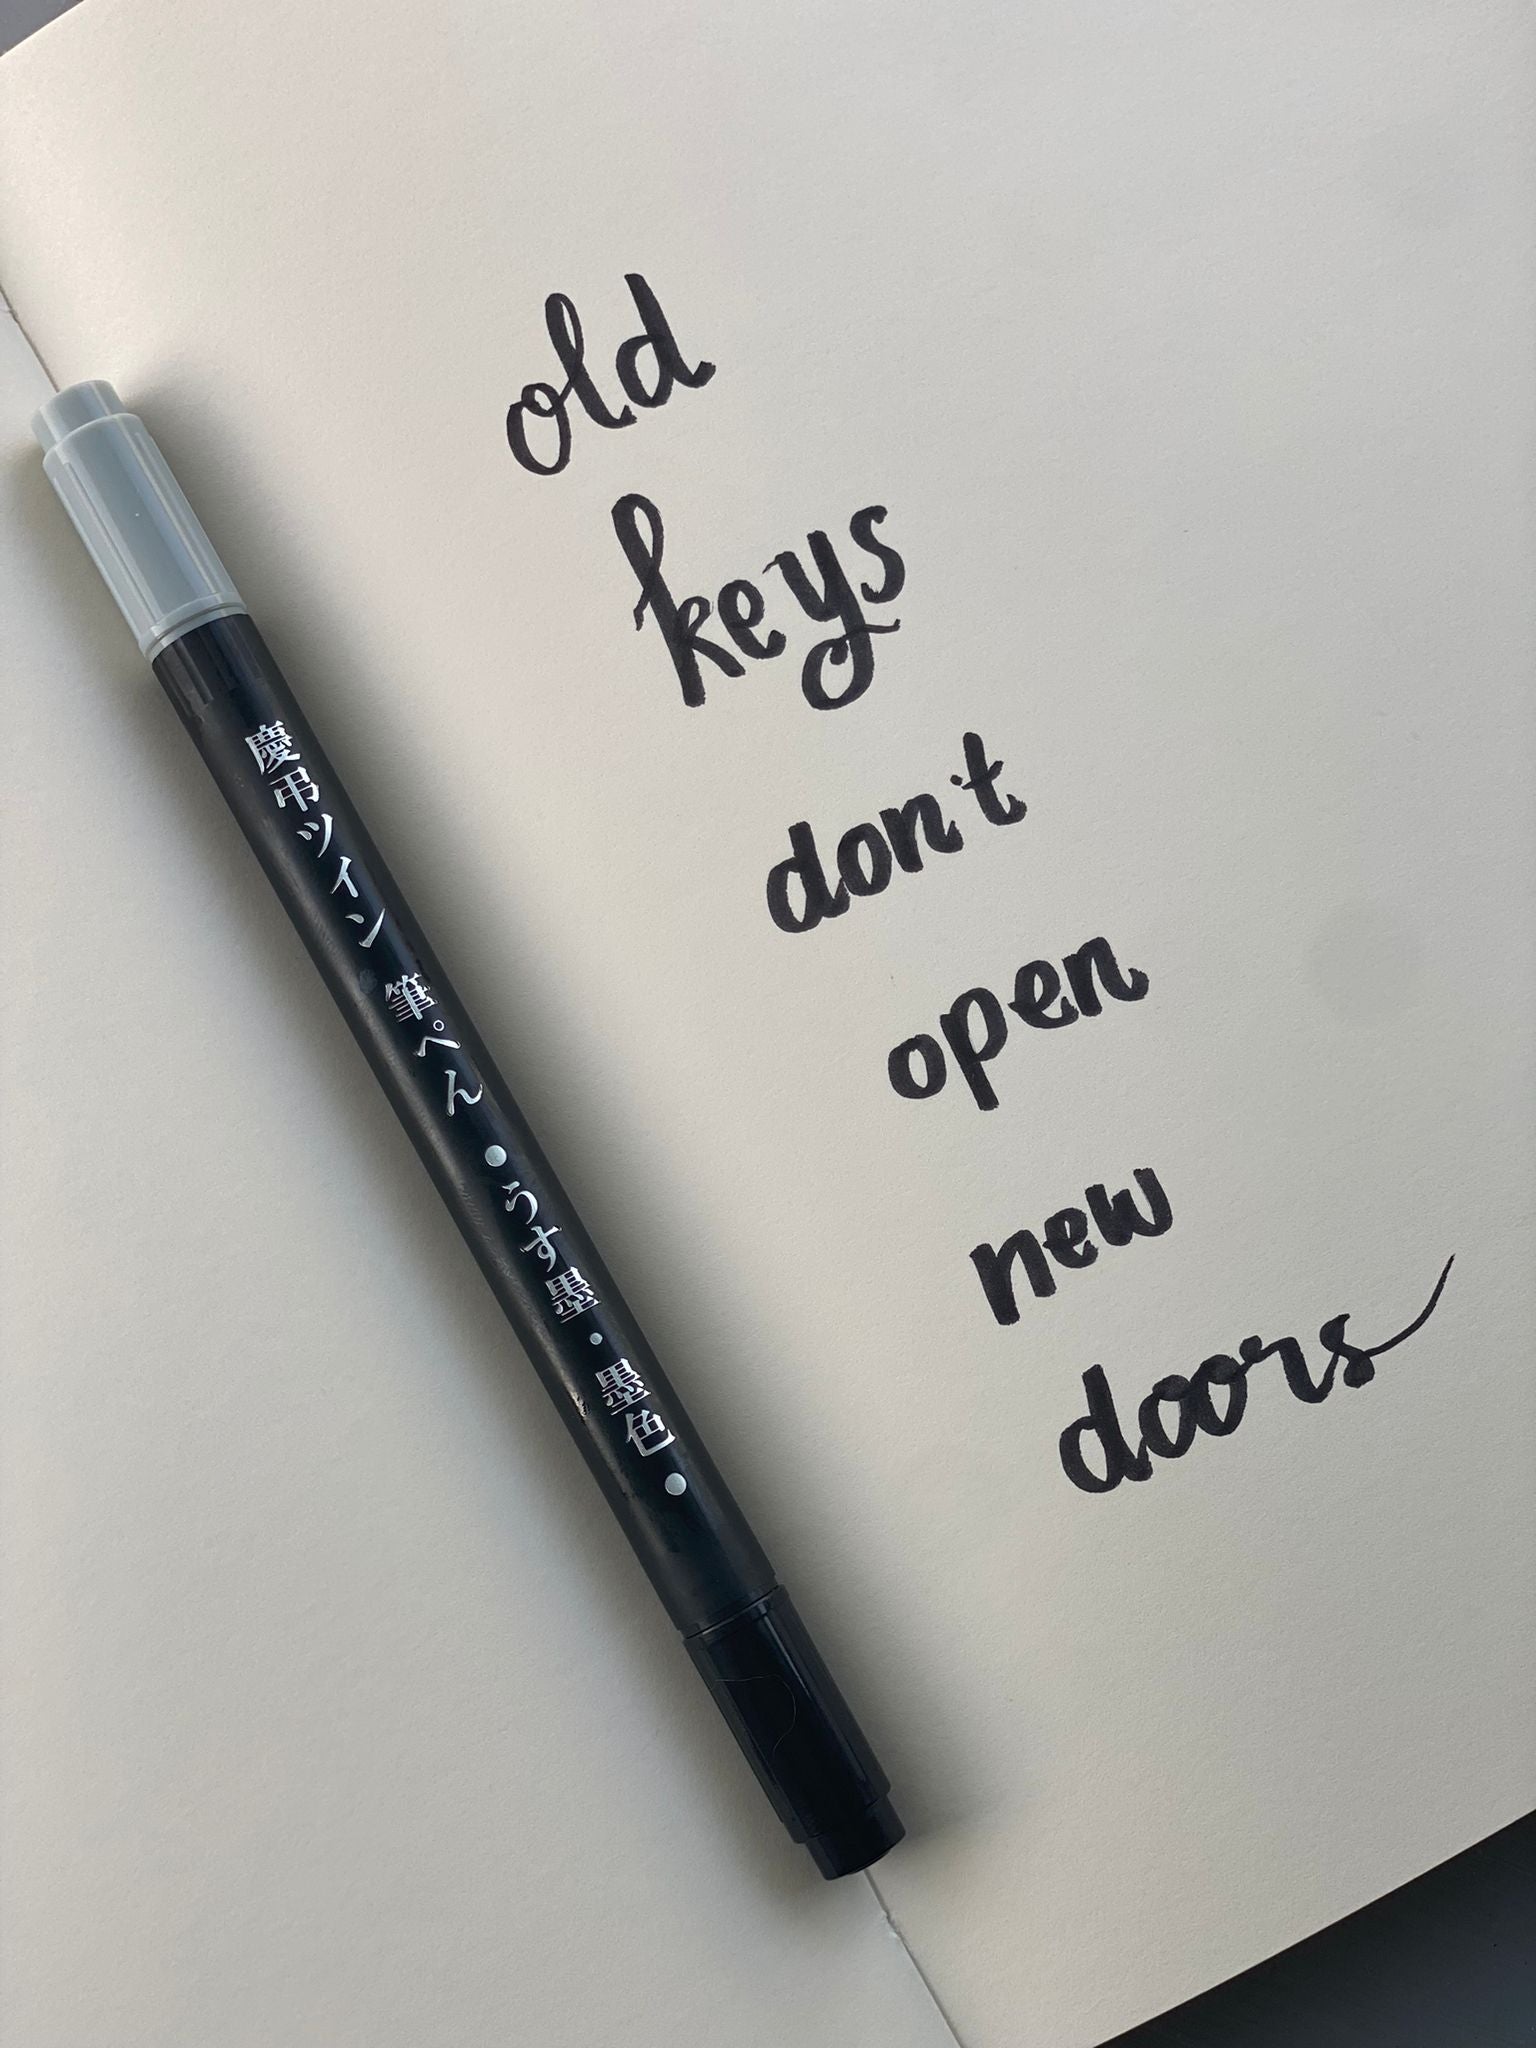 慶弔ツイン 筆ぺん ●うす墨・墨色●
old
keys
don't
open
new
doors